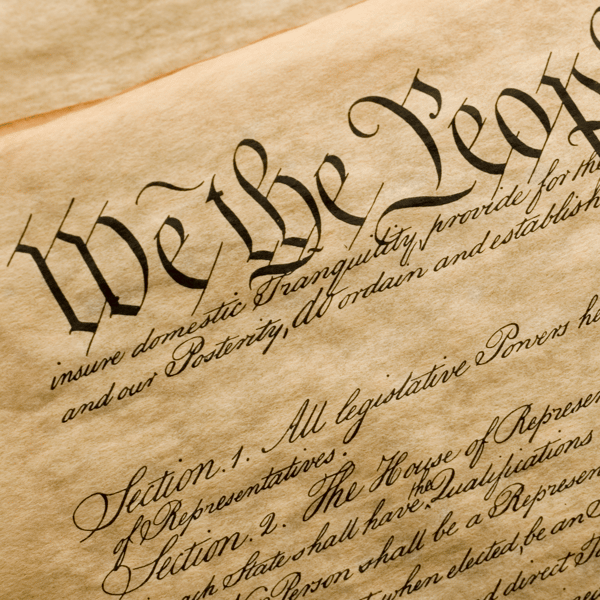 We the Peop
insure domestic Tranquility, provide for the
and our Posterity, do ordain and establish
Section. 1. All legislative Powers he
of Representatives.
Section. 2. The House of Represen
the
ach State shall have Qualifications
Person shall be a Represen
t when elected, be an
nd direct Ta